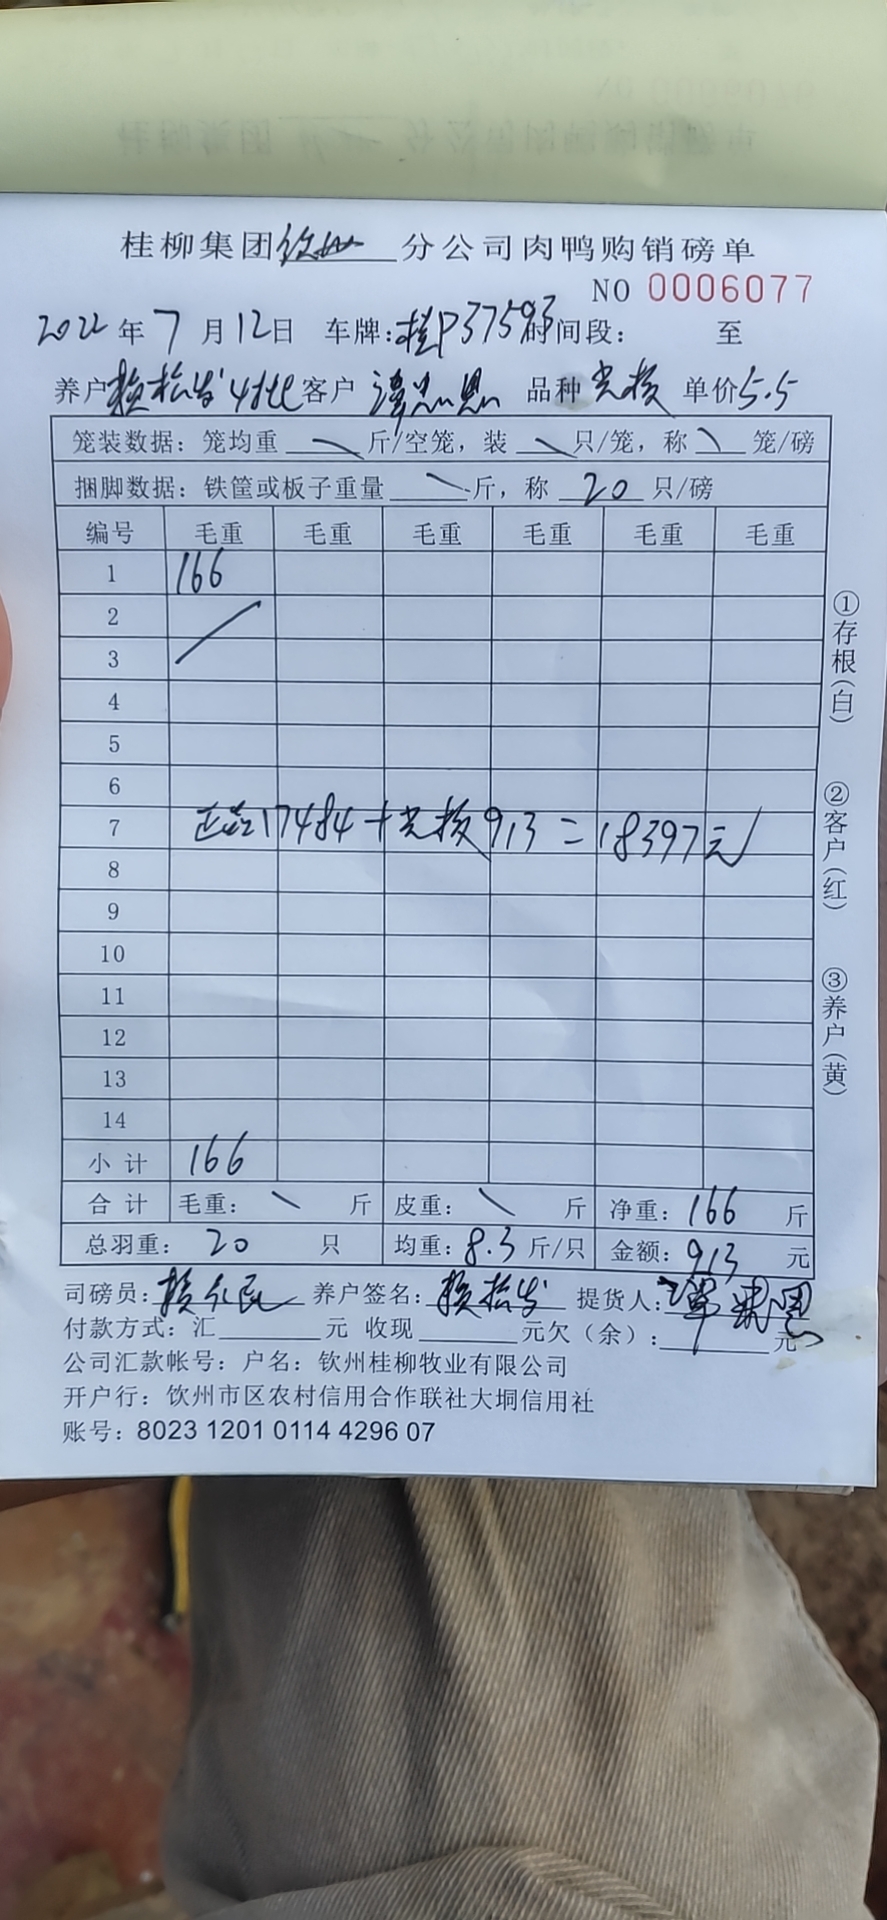 桂柳集团钦州分公司肉鸭购销磅单
NO 0006077
2022年7月12日 车牌:桂P37593 时间段: 至
养户赖松发4批客户 谭忠恩 品种 单价5.5
笼装数据: 笼均重 \ 斤/空笼, 装 \ 只/笼, 称 \ 笼/磅
捆脚数据: 铁筐或板子重量 \ 斤, 称 20 只/磅
编号 毛重 毛重 毛重 毛重 毛重 毛重
1 166
2
3
4
5
6
7 正品17484+ 913=18397元
8
9
10
11
12
13
14
小计 166
合计 毛重: \ 斤 皮重: \ 斤 净重: 166 斤
总羽重: 20 只 均重: 8.3 斤/只 金额: 913 元
司磅员: 养户签名: 赖松发 提货人:
付款方式: 汇 元 收现 元欠(余): 元
公司汇款帐号: 户名: 钦州桂柳牧业有限公司
开户行: 饮州市区农村信用合作联社大垌信用社
账号: 8023 1201 0114 4296 07
①存根(白)
②客户(红)
③养户(黄)